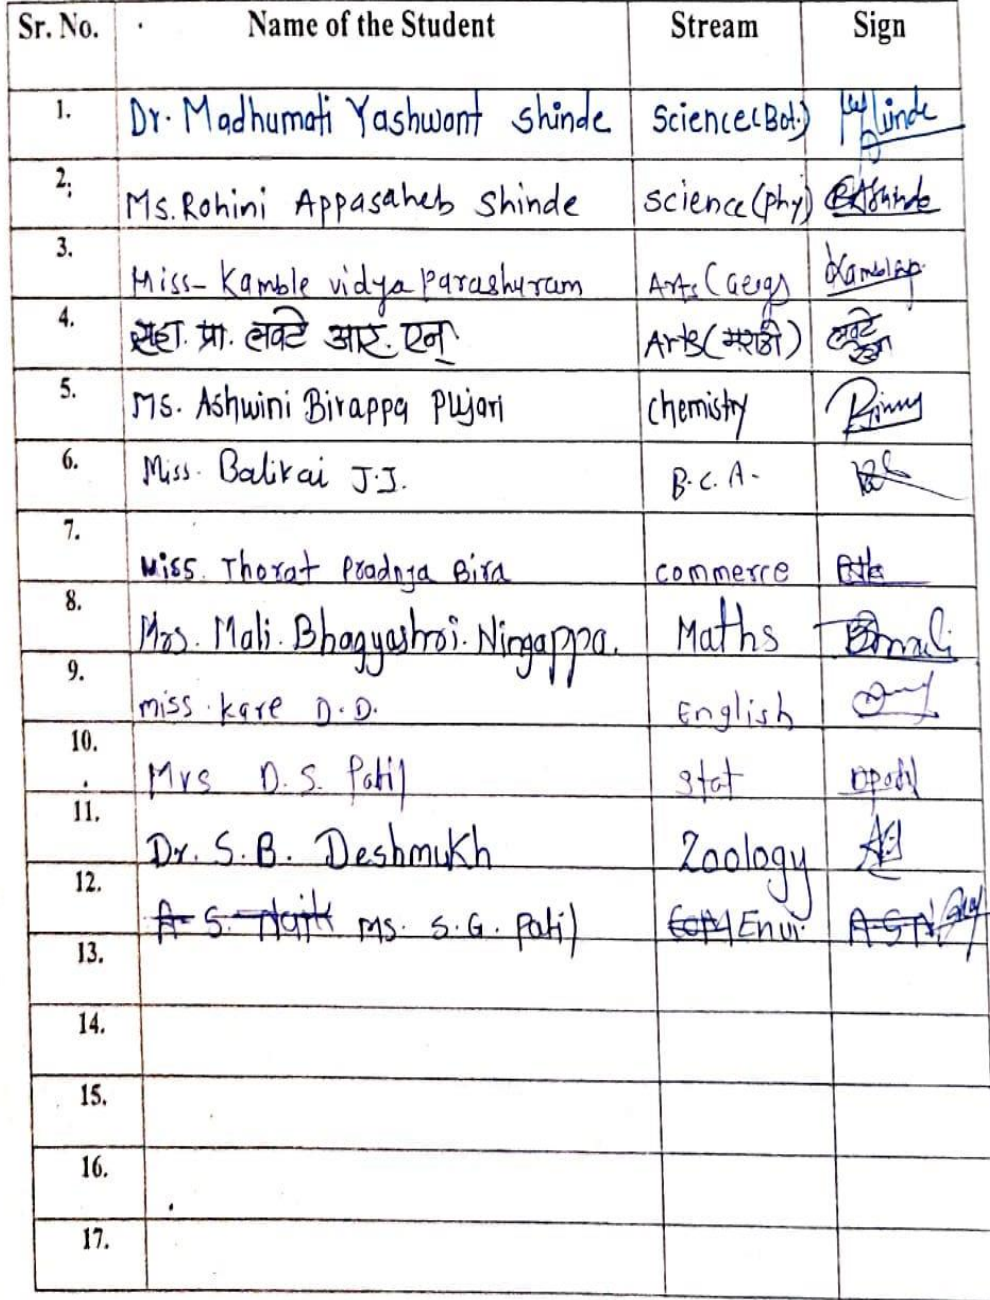 Sr. No. Name of the Student Stream Sign
1. Dr. Madhumati Yashwant Shinde Science(Bot.) Shinde
2. Ms. Rohini Appasaheb Shinde Science(phy) RAShinde
3. Miss- Kamble vidya Parashuram Arts (Geog) Kamble
4. सहा. प्रा. लवटे आर. एन् Arts(मराठी) लवटे
5. Ms. Ashwini Birappa Pujari chemistry
6. Miss. Balikai J.J. B.C.A.
7. Miss. Thorat Pradnya Bira commerce
8. Mrs. Mali. Bhagyashri. Ningappa. Maths Bmali
9. miss. kare D.D. English
10. Mrs D.S. Patil stat Dpatil
11. Dr. S.B. Deshmukh Zoology
12. A S. Naik Ms. S.G. Patil Envi. A S N
13.
14.
15.
16.
17.